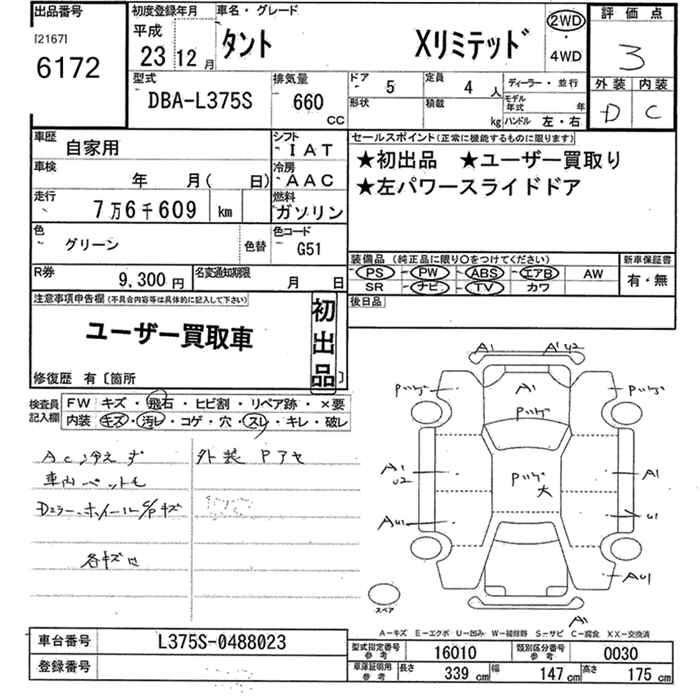 出品番号
[2167]
6172
初度登録年月
平成
23 12月
車名・グレード
タント Xリミテッド
2WD
・
4WD
評価点
3
外装 内装
D C
型式
DBA-L375S
排気量
660
CC
ドア 5
形状
定員 4人
積載 kg
ディーラー・並行
モデル年式 年
ハンドル 左・右
車歴
自家用
シフト
IAT
車検
年 月( 日)
冷房
AAC
走行
7万6千609 km
燃料
ガソリン
色
グリーン
色替
色コード
G51
R券
9,300円
名変通知期限
月 日
セールスポイント(正常に機能するものに限ります)
★初出品 ★ユーザー買取り
★左パワースライドドア
装備品(純正品に限り○をつけてください)
PS PW ABS エアB AW
SR ナビ TV カワ
新車保証書
有・無
後日品
注意事項申告欄(不具合内容等は具体的に記入して下さい)
ユーザー買取車
初出品
修復歴 有〔箇所 〕
検査員
記入欄
FW キズ・飛石・ヒビ割・リペア跡・×要
内装 キズ・汚レ・コゲ・穴・スレ・キレ・破レ
Ac冷えず
外装 Pアセ
車内ペット毛
Dミラー、ホイールC/Pキズ
各キズ凹
A1 A1 U2
Pハゲ
A1
Pハゲ
Pハゲ
A1
U2
Pハゲ
大
A1
AU1
U1
AU1
A1
スペア
A-キズ E-エクボ U-凹み W-補修跡 S-サビ C-腐食 XX-交換済
車台番号
L375S-0488023
登録番号
型式指定番号
参考
16010
類別区分番号
参考
0030
車庫証明用
参考
長さ 339 cm
幅 147 cm
高さ 175 cm